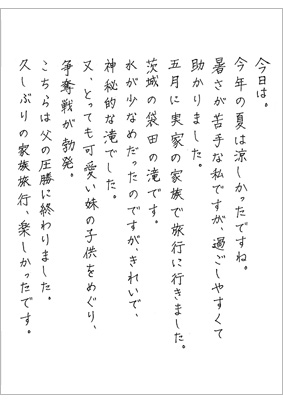 今日は。
今年の夏は涼しかったですね。
暑さが苦手な私ですが、過ごしやすくて
助かりました。
五月に実家の家族で旅行に行きました。
茨城の袋田の滝です。
水が少なめだったのですが、きれいで、
神秘的な滝でした。
又、とっても可愛い妹の子供をめぐり、
争奪戦が勃発。
こちらは父の圧勝に終わりました。
久しぶりの家族旅行、楽しかったです。